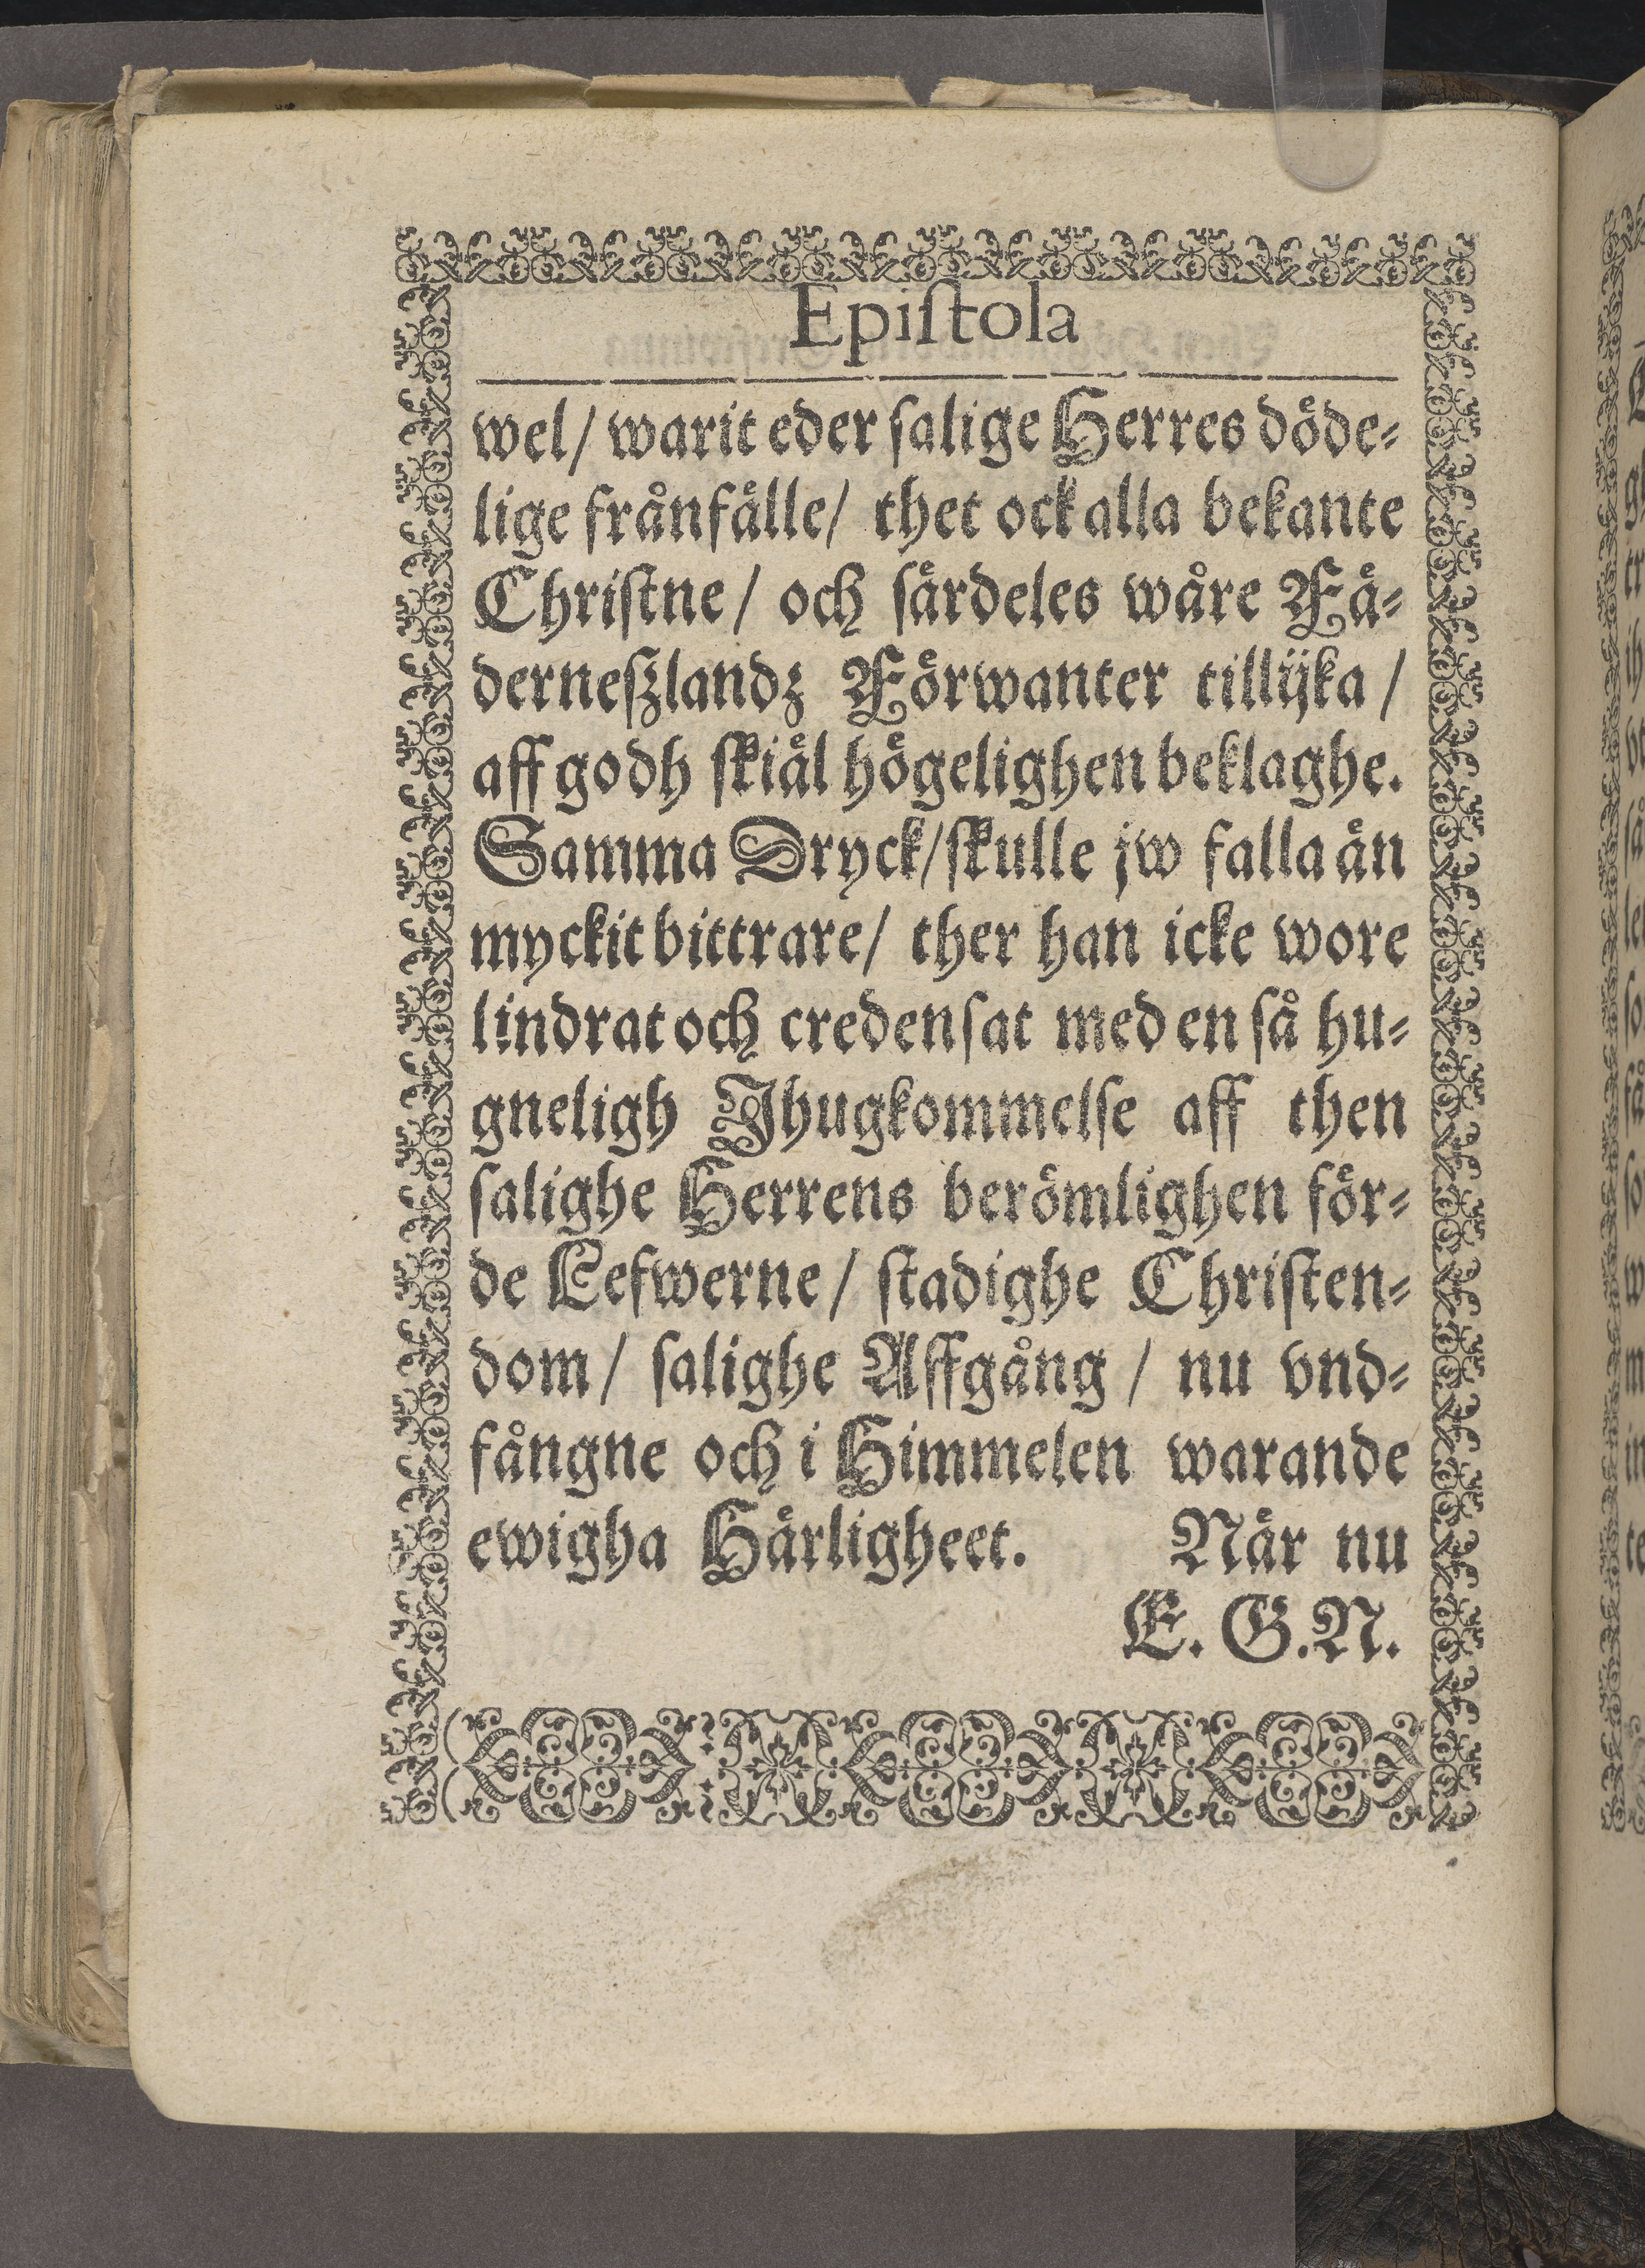 Epiſtola
wel/ warit eder ſalige Herres döde⸗
lige frånfälle/ thet ock alla bekante
Chriſtne / och ſärdeles wåre Fä⸗
derneſzlandz Förwanter tillijka /
aff godh ſkiäl högelighen beklaghe.
Samma Dryck/ ſkulle jw falla än
myckit bittrare/ ther han icke wore
lindrat och credenſat med en ſå hu⸗
gneligh Ihugkommelſe aff then
ſalighe Herrens berömlighen för⸗
de Lefwerne / ſtadighe Chriſten⸗
dom / ſalighe Affgång / nu vnd⸗
fångne och i Himmelen warande
ewigha Härligheet. När nu
E. G. N.